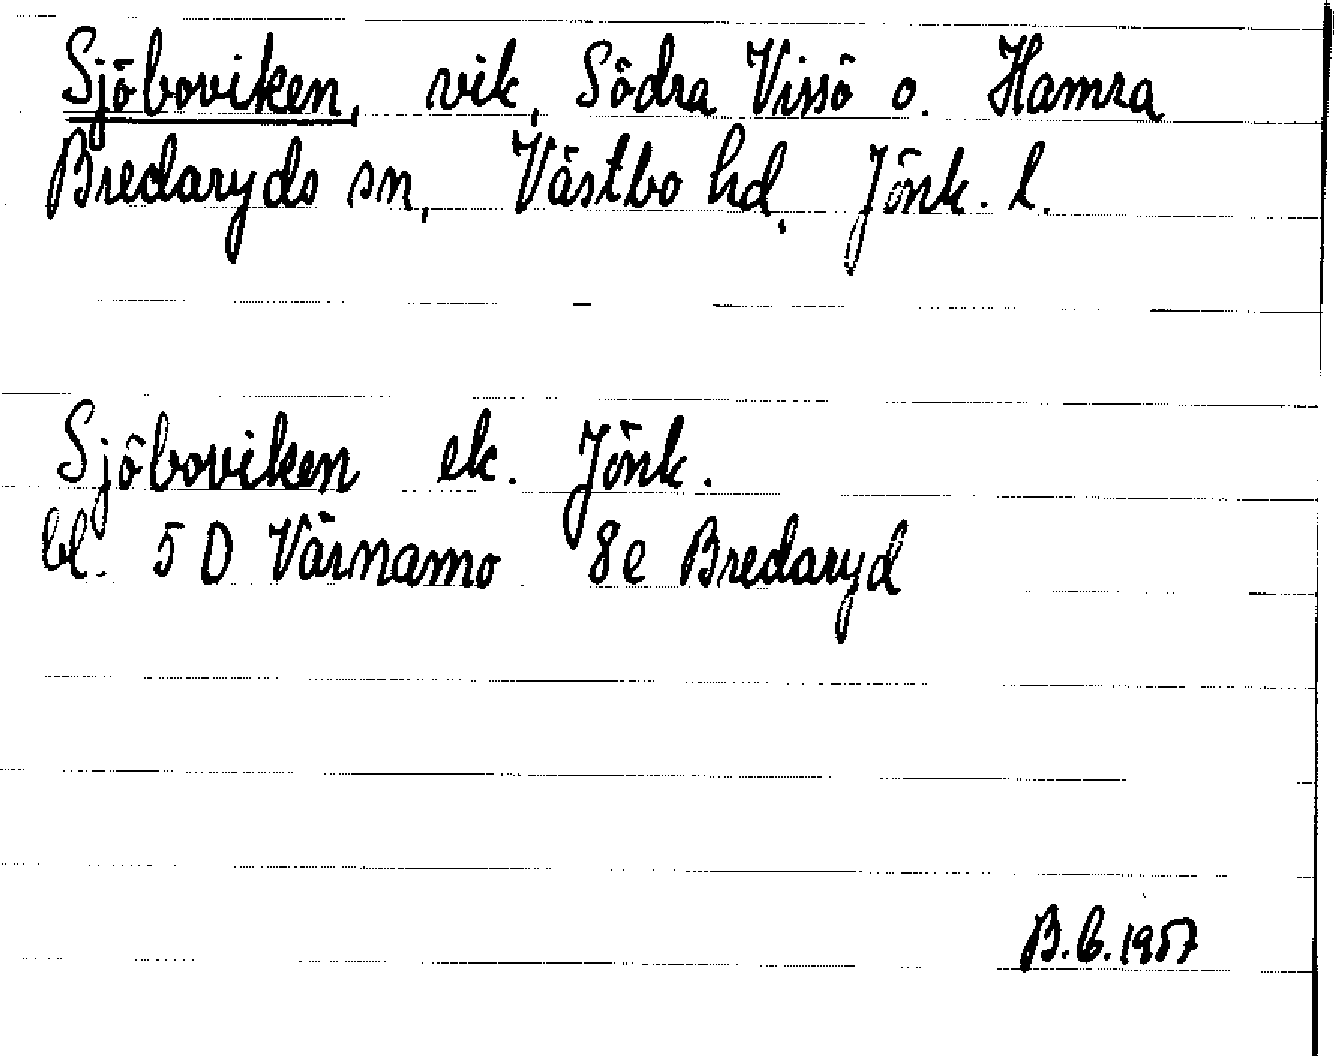 Sjöboviken, vik, Södra Vissö o. Hamra
Bredaryds sn, Västbo hd, Jönk. l.
Sjöboviken ek. Jönk.
bl. 5 D Värnamo 8e Bredaryd
B.G.1957